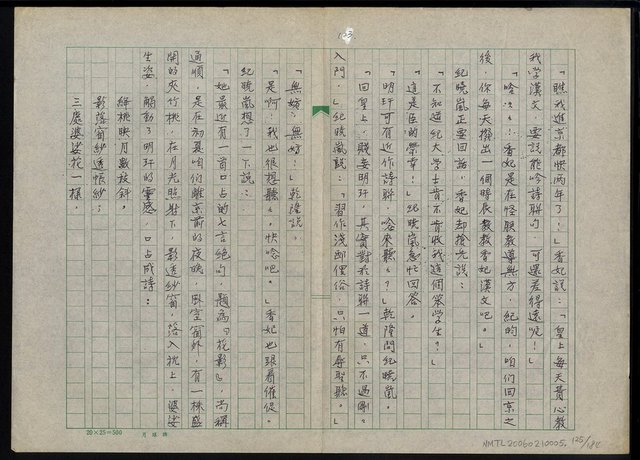 123.
「瞧我進京都快兩年了!」香妃說:「皇上每天費心教
我學漢文,要說能吟詩聯句,可還差得遠呢!」
「哈哈!香妃是在怪朕教導無方,紀昀,咱們回京之
後,你每天撥出一個時辰教教香妃漢文吧。」
紀曉嵐正要回話,香妃却搶先說:
「不知道紀大學士肯不肯收我這個笨學生?」
「這是臣的榮幸!」紀曉嵐急忙回答。
「明玕可有近作詩聯,唸來聽聽?」乾隆問紀曉嵐。
「回皇上,賤妾明玕,其實對於詩聯一道,只不過剛剛
入門,」紀曉嵐說:「習作淺鄙俚俗,只怕有辱聖聽。」
「無妨,無妨!」乾隆說。
「是啊,我也很想聽聽,快唸吧。」香妃也跟着催促。
紀曉嵐想了一下說:
「她最近有一首口占的七言絕句,題為『花影』,尚稱
通順,是在初夏咱們離京前的夜晚,臥室窗外,有一株盛
開的夾竹桃,在月光照射下,影透紗窗,落入枕上,婆娑
生姿,觸動了明玕的靈感,口占成詩:
絳桃映月數枝斜,
影落窗紗透帳紗;
三處婆娑花一樣,
20×25=500
NMTL20060210005,125/184